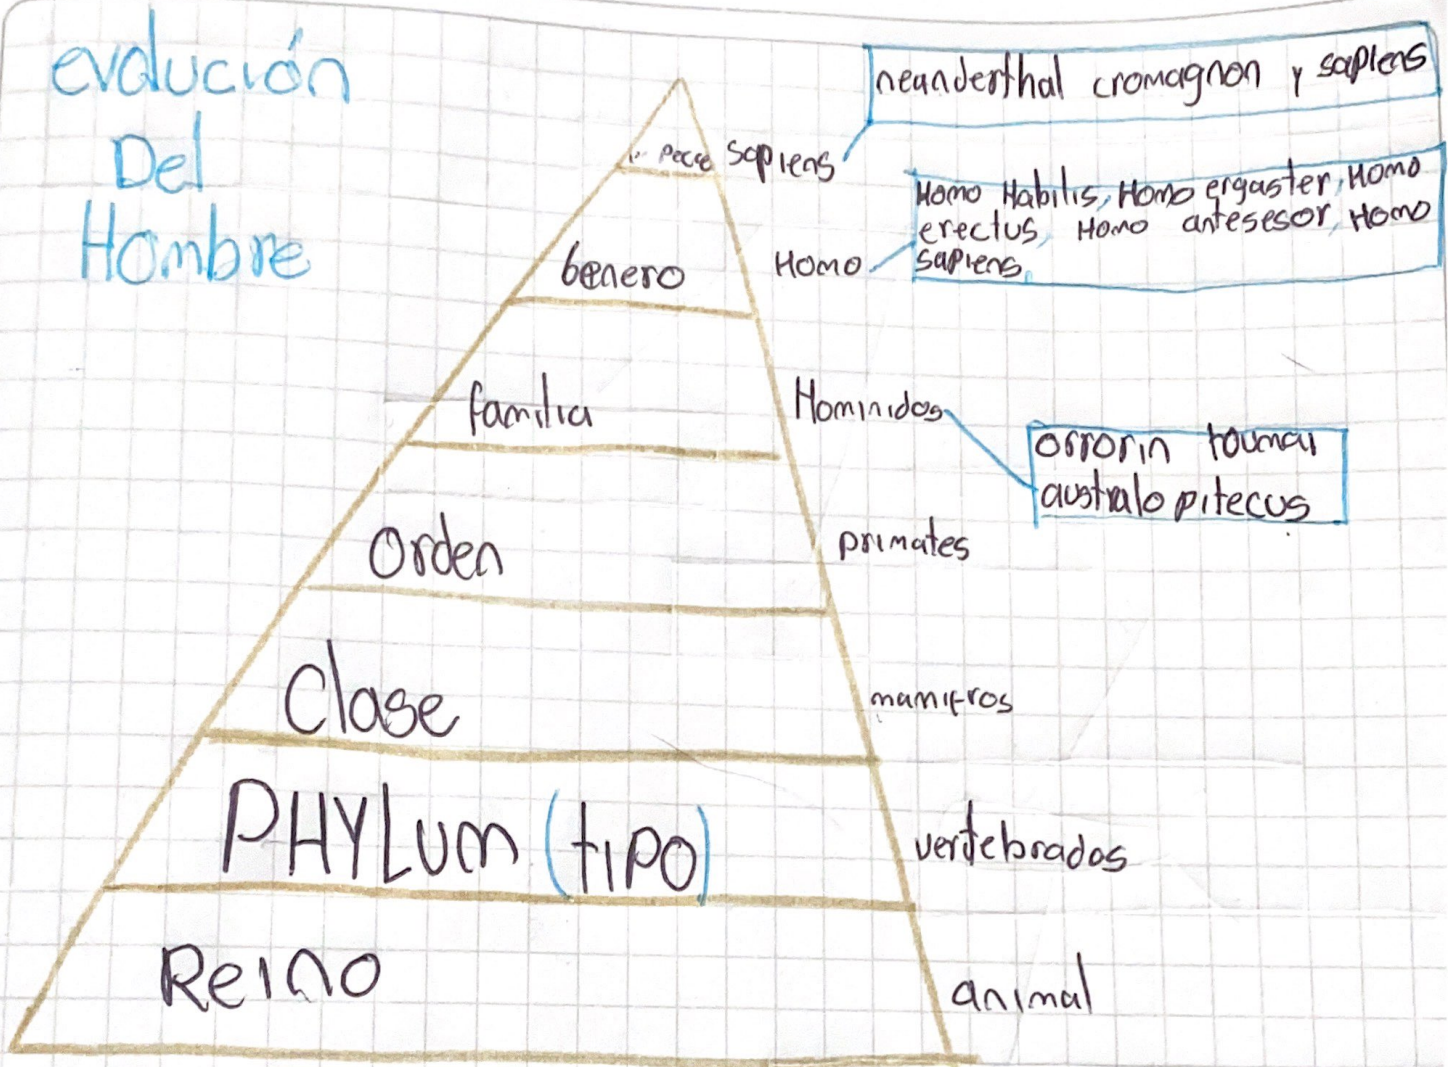 evolución
Del
Hombre
neanderthal cromagnon y sapiens
sapiens
Homo Habilis, Homo ergaster, Homo
erectus, Homo antesesor, Homo
sapiens.
Genero
Homo
familia
Hominidos
orrorin toumai
australo pitecus
Orden
primates
Clase
mamifros
PHYLum (tipo)
vertebrados
Reino
animal